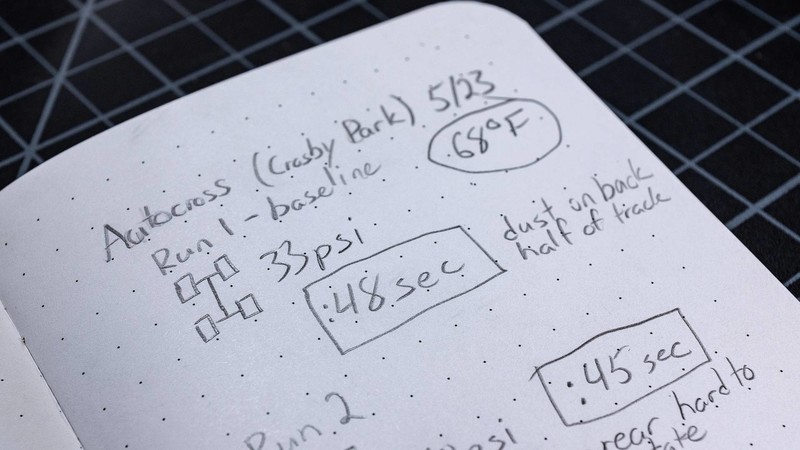 Autocross (Crosby Park) 5/23
68°F
Run 1 - baseline
33psi
:48 sec
dust on back
half of track
Run 2
psi
:45 sec
rear hard to